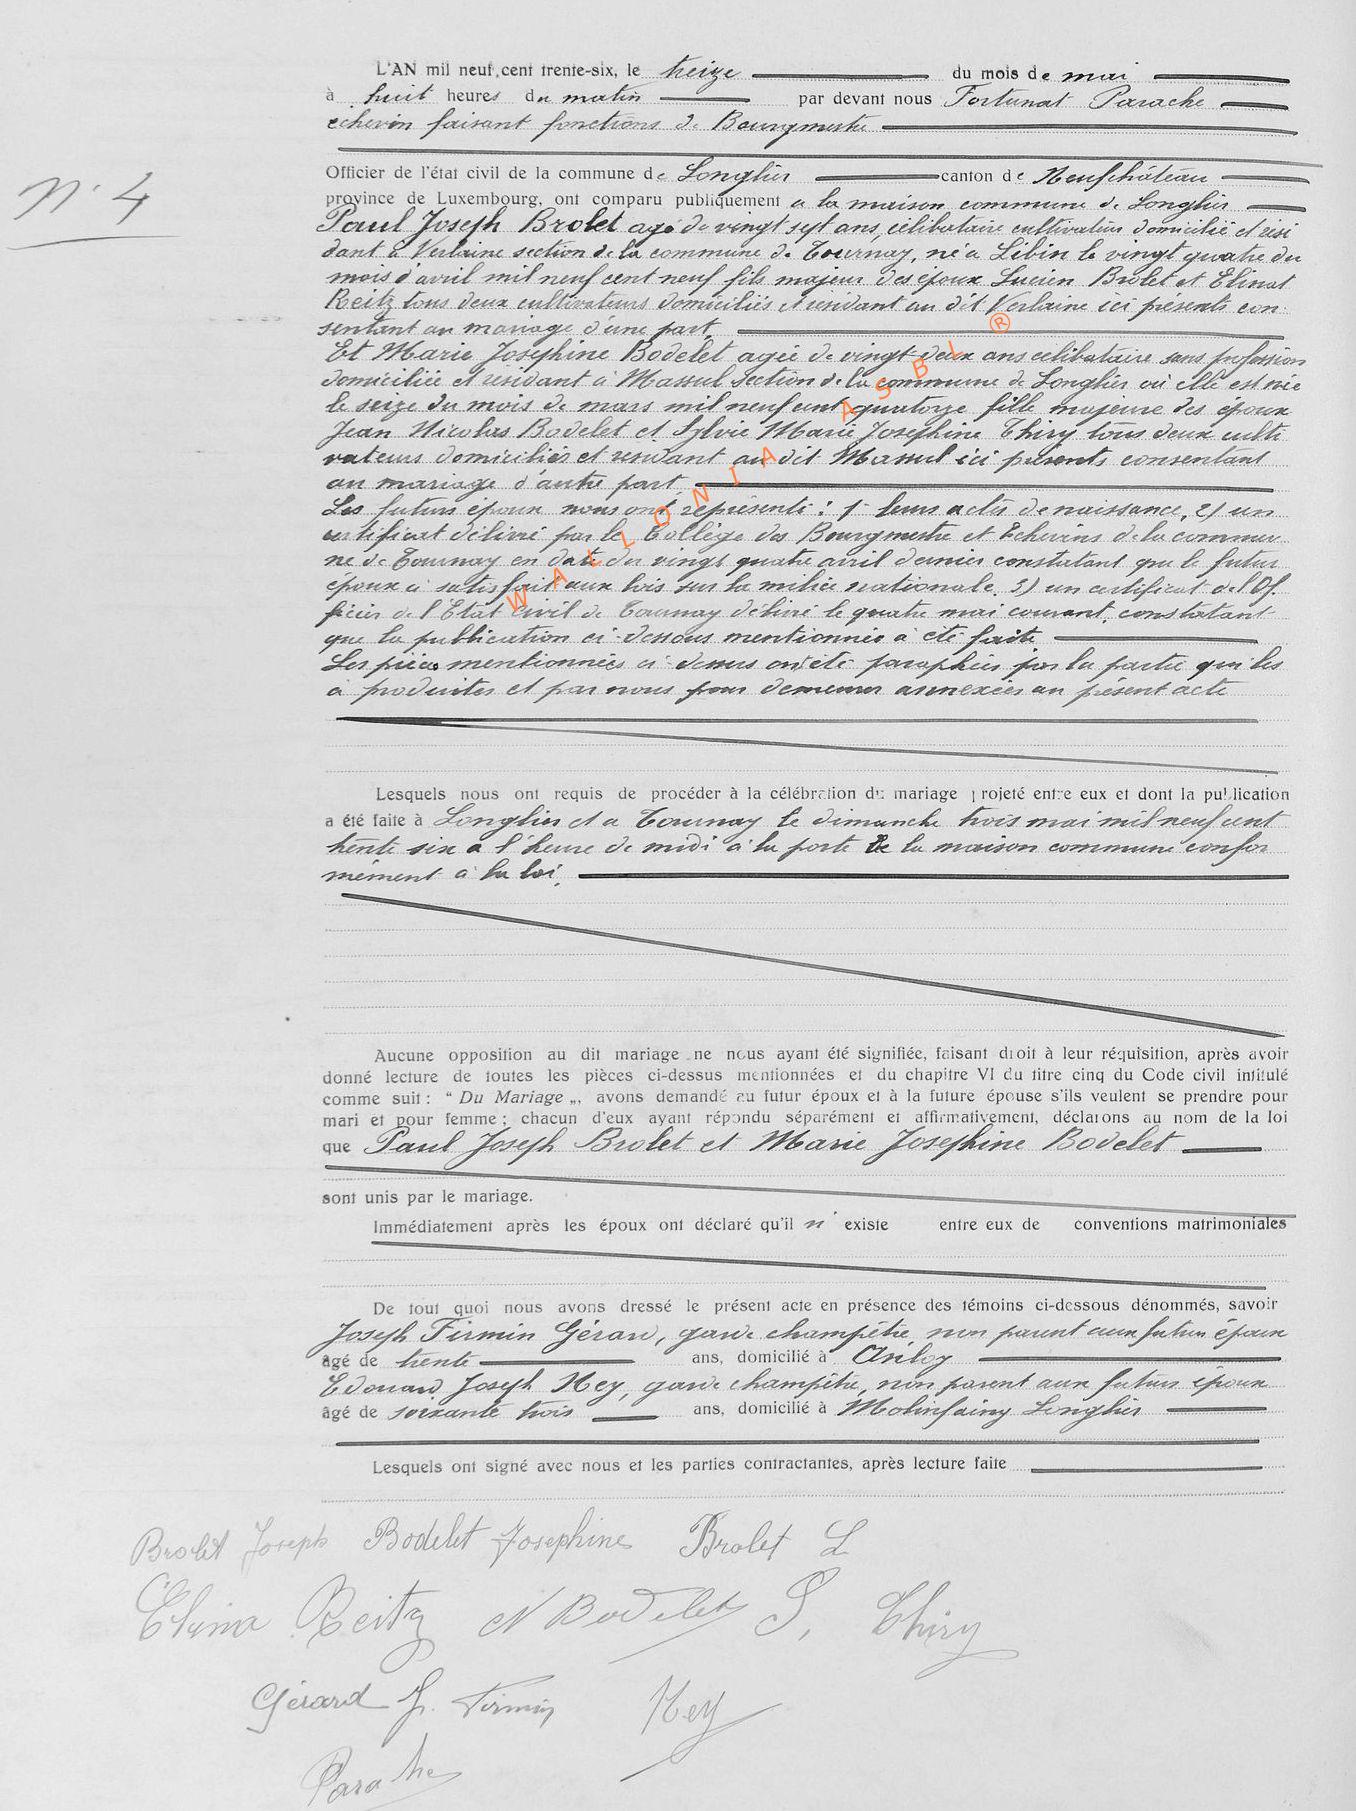 L'AN mil neuf cent trente-six, le treize du mois de mai
à huit heures du matin par devant nous Fortunat Parache
échevin faisant fonctions de Bourgmestre
Officier de l'état civil de la commune de Longlier canton de Neufchâteau
N° 4
province de Luxembourg, ont comparu publiquement a la maison commune de Longlier
Paul Joseph Brolet agé de vingt sept ans, célibataire cultivateur domicilié et rési
dant à Verlaine section de la commune de Tournay, né à Libin le vingt quatre du
mois d'avril mil neuf cent neuf fils majeur des époux Lucien Brolet et Elina
Reitz tous deux cultivateurs domiciliés et résidant au dit Verlaine ici présents con
sentant au mariage d'une part.
Et Marie Josephine Bodelet agée de vingt deux ans célibataire sans profession
domiciliée et résidant à Massul section de la commune de Longlier où elle est née
le seize du mois de mars mil neuf cent quatorze fille majeure des époux
Jean Nicolas Bodelet et Sylvie Marie Josephine Thiry tous deux culti
vateurs domiciliés et résidant au dit Massul ici présents consentant
au mariage d'autre part.
Les futurs époux nous ont représenté : 1° leurs actes de naissance, 2) un
certificat délivré par le Collège des Bourgmestre et Echevins de la commu
ne de Tournay en date du vingt quatre avril dernier constatant que le futur
époux à satisfait aux lois sur la milice nationale. 3) un certificat de l'Of
ficier de l'Etat Civil de Tournay délivré le quatre mai courant, constatant
que la publication ci-dessous mentionnée a été faite
Les pièces mentionnées ci-dessus ont été paraphées par la partie qui les
à produites et par nous pour demeurer annexées au présent acte
WALLONIA ASBL ®
Lesquels nous ont requis de procéder à la célébration du mariage projeté entre eux et dont la publication
a été faite à Longlier et a Tournay le dimanche trois mai mil neuf cent
trente six a l'heure de midi à la porte de la maison commune confor
mément à la loi.
Aucune opposition au dit mariage ne nous ayant été signifiée, faisant droit à leur réquisition, après avoir
donné lecture de toutes les pièces ci-dessus mentionnées et du chapitre VI du titre cinq du Code civil intitulé
comme suit : " Du Mariage „, avons demandé au futur époux et à la future épouse s'ils veulent se prendre pour
mari et pour femme ; chacun d'eux ayant répondu séparément et affirmativement, déclarons au nom de la loi
que Paul Joseph Brolet et Marie Josephine Bodelet
sont unis par le mariage.
Immédiatement après les époux ont déclaré qu'il n' existe entre eux de conventions matrimoniales
De tout quoi nous avons dressé le présent acte en présence des témoins ci-dessous dénommés, savoir
Joseph Firmin Gérard, garde champêtre, non parent aux futurs époux
âgé de trente ans, domicilié à Orilog
Edouard Joseph Ney, garde champêtre, non parent aux futurs époux
âgé de soixante trois ans, domicilié à Molinfaing Longlier
Lesquels ont signé avec nous et les parties contractantes, après lecture faite
Brolet Joseph Bodelet Josephine Brolet L
Elina Reitz N Bodelet S. Thiry
Gérard J. Firmin Ney
Parache